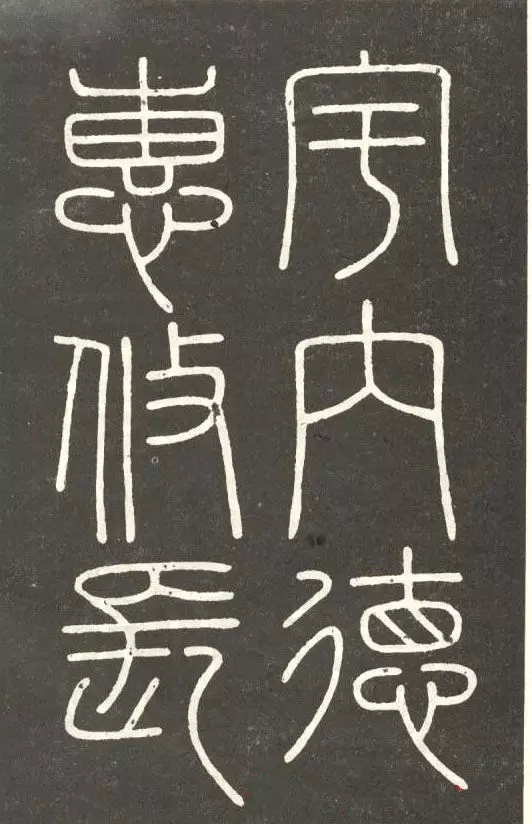 宇內德
惠攸長